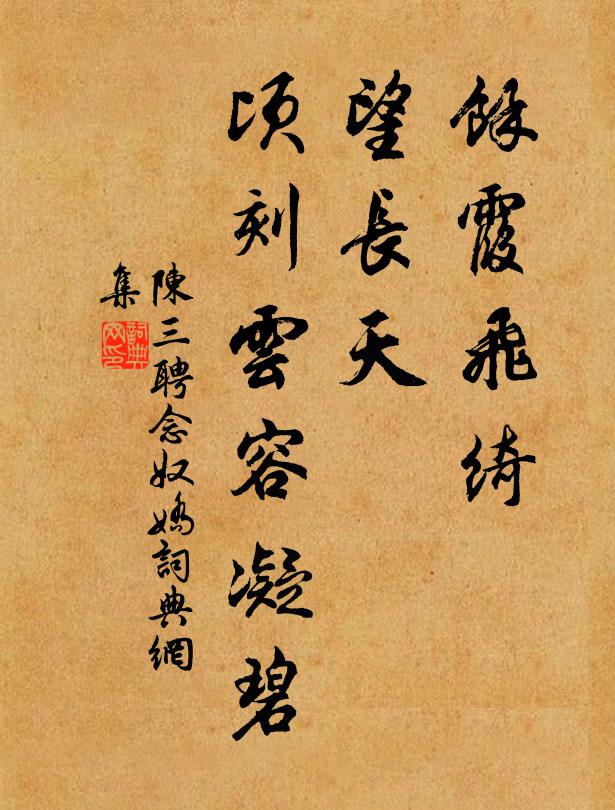 餘霞飛綺
望長天
頃刻雲容凝碧
陳三聘念奴嬌詞典網
集
詞典
网印